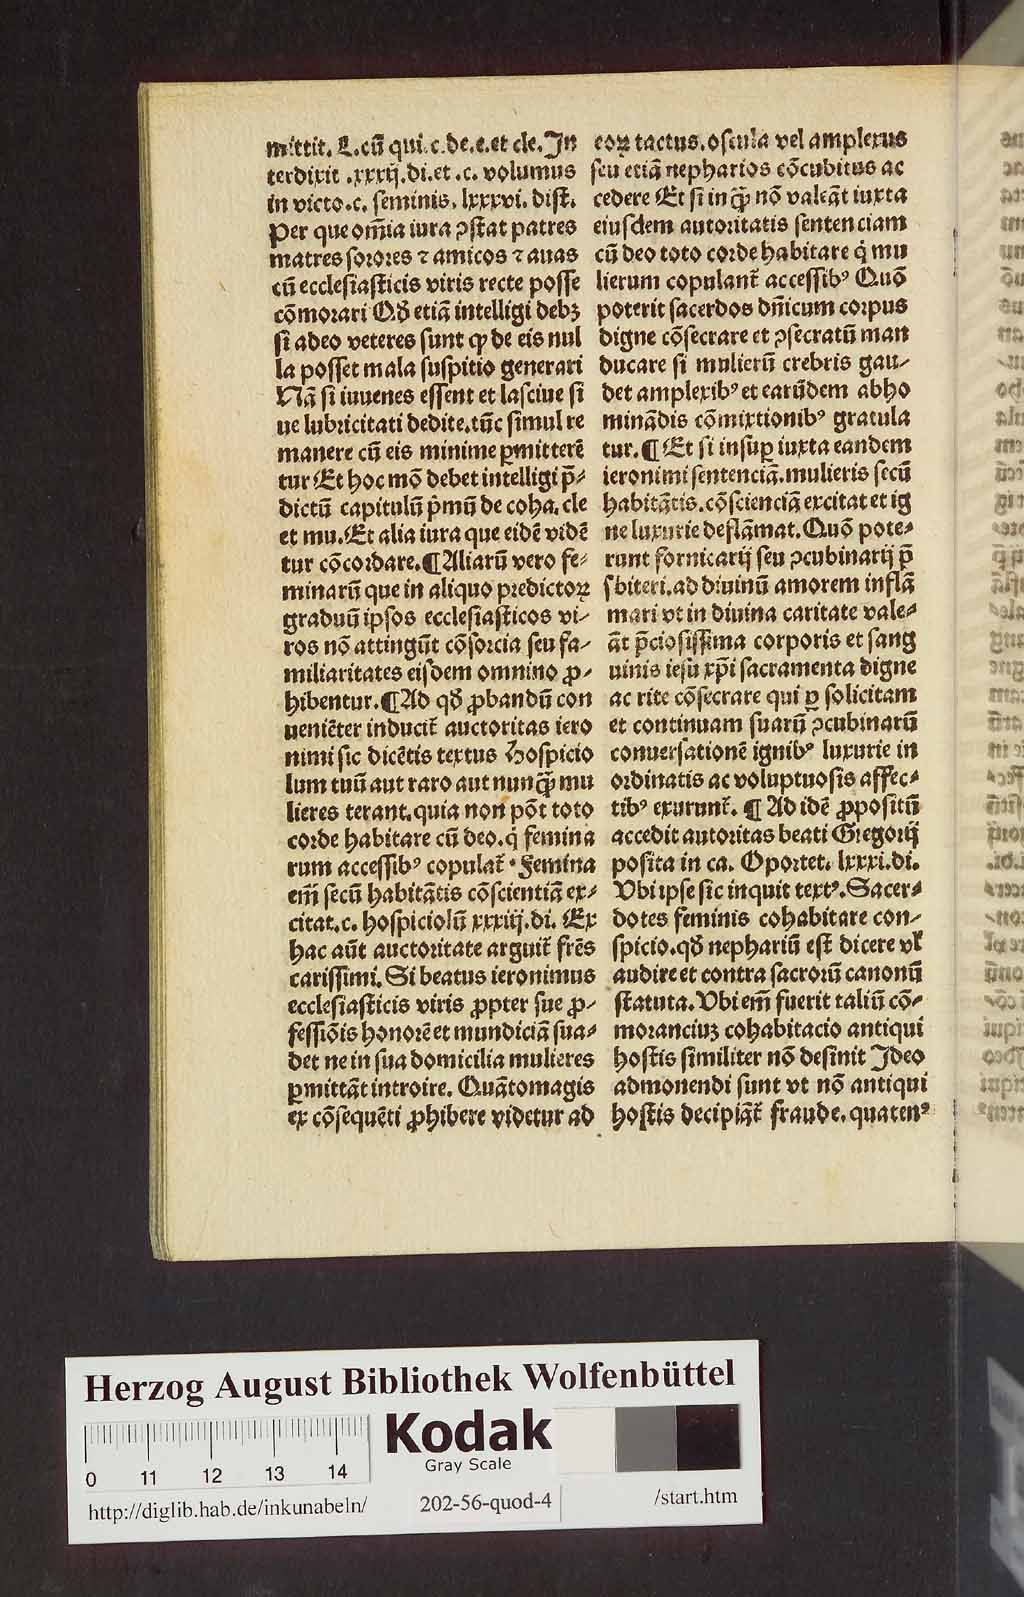 mittit. L.cū qui.c.de.e.et cle. In
terdixit .xxxij.di.et .c. volumus
in victo.c. seminis. lxxxvi. dist.
Per que om̄ia iura ꝯstat patres
matres sorores ⁊ amicos ⁊ auas
cū ecclesiasticis viris recte posse
cōmorari Qđ etiā intelligi debꝫ
si adeo veteres sunt ꝙ de eis nul
la posset mala suspitio generari
Nā si iuuenes essent et lasciue si
ue lubricitati dedite.tūc simul re
manere cū eis minime ꝑmitterē
tur Et hoc mō debet intelligi p̄-
dictū capitulū p̄mū de coha. cle
et mu. Et alia iura que eidē vidē
tur cōcordare. ¶ Aliarū vero fe-
minarū que in aliquo predictoꝝ
graduū ipsos ecclesiasticos vi-
ros nō attingūt cōsorcia seu fa-
miliaritates eisdem omnino ꝓ-
hibentur. ¶ Ad qđ ꝓbandū con
ueniēter inducit̄ auctoritas iero
nimi sic dicētis textus Hospicio
lum tuū aut raro aut nunq̄ mu
lieres terant.quia non pōt toto
corde habitare cū deo.q̇ femina
rum accessibꝰ copulat̄. Femina
em̄ secū habitātis cōscientiā ex-
citat.c. hospiciolū xxxiij.di. Ex
hac aūt auctoritate arguit̄ fr̄es
carissimi. Si beatus ieronimus
ecclesiasticis viris ꝓpter sue ꝓ-
fessiōis honorē et mundiciā sua-
det ne in sua domicilia mulieres
ꝑmittāt introire. Quātomagis
ex cōsequēti ꝓhibere videtur ad
eoꝝ tactus. oscula vel amplexus
seu etiā nepharios cōcubitus ac
cedere Et si in q̄ nō valeāt iuxta
eiusdem autoritatis sentenciam
cū deo toto corde habitare q̇ mu
lierum copulant̄ accessibꝰ Quō
poterit sacerdos dn̄icum corpus
digne cōsecrare et ꝯsecratū man
ducare si mulierū crebris gau-
det amplexibꝰ et earūdem abho
minādis cōmixtionibꝰ gratula
tur. ¶ Et si insuꝑ iuxta eandem
ieronimi sentenciā.mulieris secū
habitātis. cōscienciā excitat et ig
ne luxurie deflāmat. Quō pote-
runt fornicarij seu ꝯcubinarij p̄
sbiteri.ad diuinū amorem inflā
mari vt in diuina caritate vale-
āt p̄ciosissima corporis et sang
uinis iesu xp̄i sacramenta digne
ac rite cōsecrare qui ꝑ solicitam
et continuam suarū ꝯcubinarū
conuersationē ignibꝰ luxurie in
ordinatis ac voluptuosis affec-
tibꝰ exurunt̄. ¶ Ad idē ꝓpositū
accedit autoritas beati Gregorij
posita in ca. Oportet. lxxxi.di.
Vbi ipse sic inquit textꝰ. Sacer-
dotes feminis cohabitare con-
spicio.qđ nephariū est dicere vl̄
audire et contra sacrorū canonū
statuta. Vbi em̄ fuerit taliū cō-
moranciuꝫ cohabitacio antiqui
hostis similiter nō desinit Ideo
admonendi sunt vt nō antiqui
hostis decipiāt̄ fraude.quatenꝰ
Herzog August Bibliothek Wolfenbüttel
Kodak
Gray Scale
0 11 12 13 14
http://diglib.hab.de/inkunabeln/ 202-56-quod-4 /start.htm